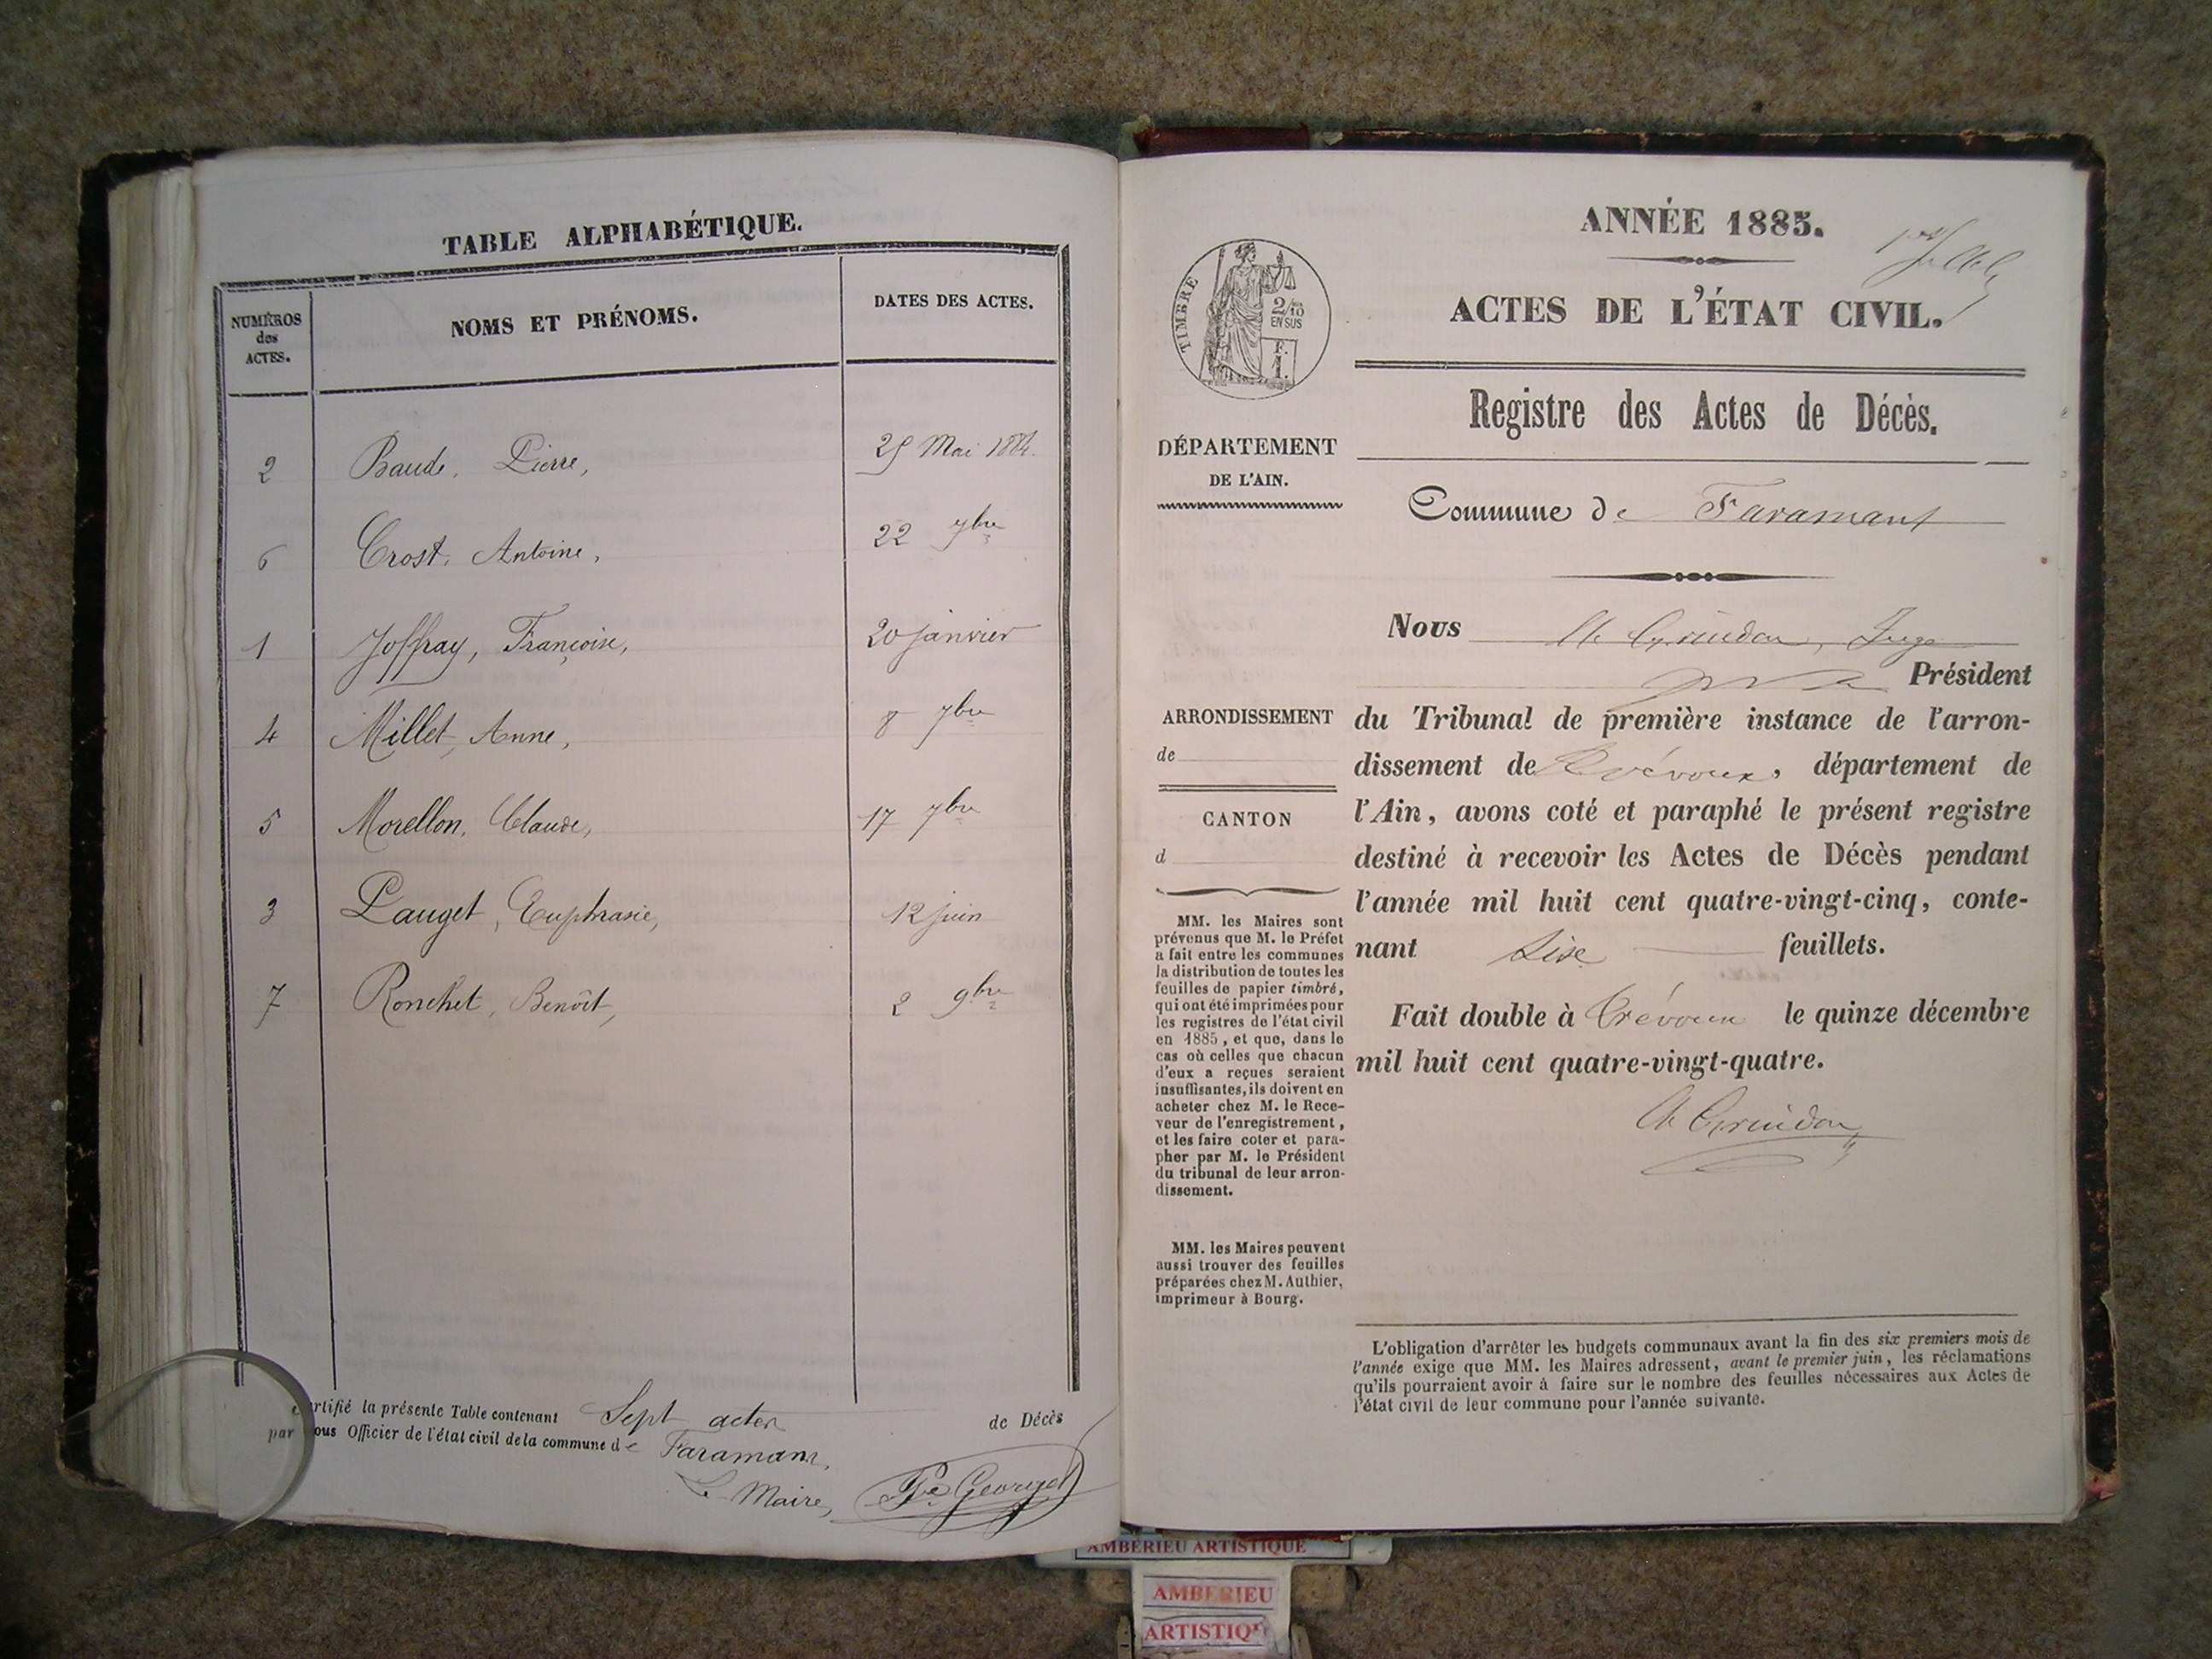 TABLE ALPHABÉTIQUE.
NUMÉROS
des
ACTES.
NOMS ET PRÉNOMS.
DATES DES ACTES.
2 Baude, Pierre, 25 Mai 1884.
6 Crost, Antoine, 22 7bre
1 Joffray, Françoise, 20 janvier
4 Millet, Anne, 8 7bre
5 Morellon, Claude, 17 7bre
3 Pauget, Euphrasie, 12 juin
7 Ronchet, Benoît, 2 9bre
Certifié la présente Table contenant Sept actes de Décès
par Nous Officier de l'état civil de la commune de Faramans,
Le Maire,
ANNÉE 1885.
ACTES DE L'ÉTAT CIVIL.
TIMBRE
2/10
EN SUS
F.
1.
Registre des Actes de Décès.
DÉPARTEMENT
DE L'AIN.
Commune de Faramans
Nous Juge
Président
ARRONDISSEMENT
de
CANTON
d
du Tribunal de première instance de l'arron-
dissement de Trévoux, département de
l'Ain, avons coté et paraphé le présent registre
destiné à recevoir les Actes de Décès pendant
l'année mil huit cent quatre-vingt-cinq, conte-
nant Six feuillets.
Fait double à Trévoux le quinze décembre
mil huit cent quatre-vingt-quatre.
MM. les Maires sont
prévenus que M. le Préfet
a fait entre les communes
la distribution de toutes les
feuilles de papier timbré,
qui ont été imprimées pour
les registres de l'état civil
en 1885, et que, dans le
cas où celles que chacun
d'eux a reçues seraient
insuffisantes, ils doivent en
acheter chez M. le Rece-
veur de l'enregistrement,
et les faire coter et para-
pher par M. le Président
du tribunal de leur arron-
dissement.
MM. les Maires peuvent
aussi trouver des feuilles
préparées chez M. Authier,
imprimeur à Bourg.
L'obligation d'arrêter les budgets communaux avant la fin des six premiers mois de
l'année exige que MM. les Maires adressent, avant le premier juin, les réclamations
qu'ils pourraient avoir à faire sur le nombre des feuilles nécessaires aux Actes de
l'état civil de leur commune pour l'année suivante.
AMBERIEU ARTISTIQUE
AMBERIEU
ARTISTIQU